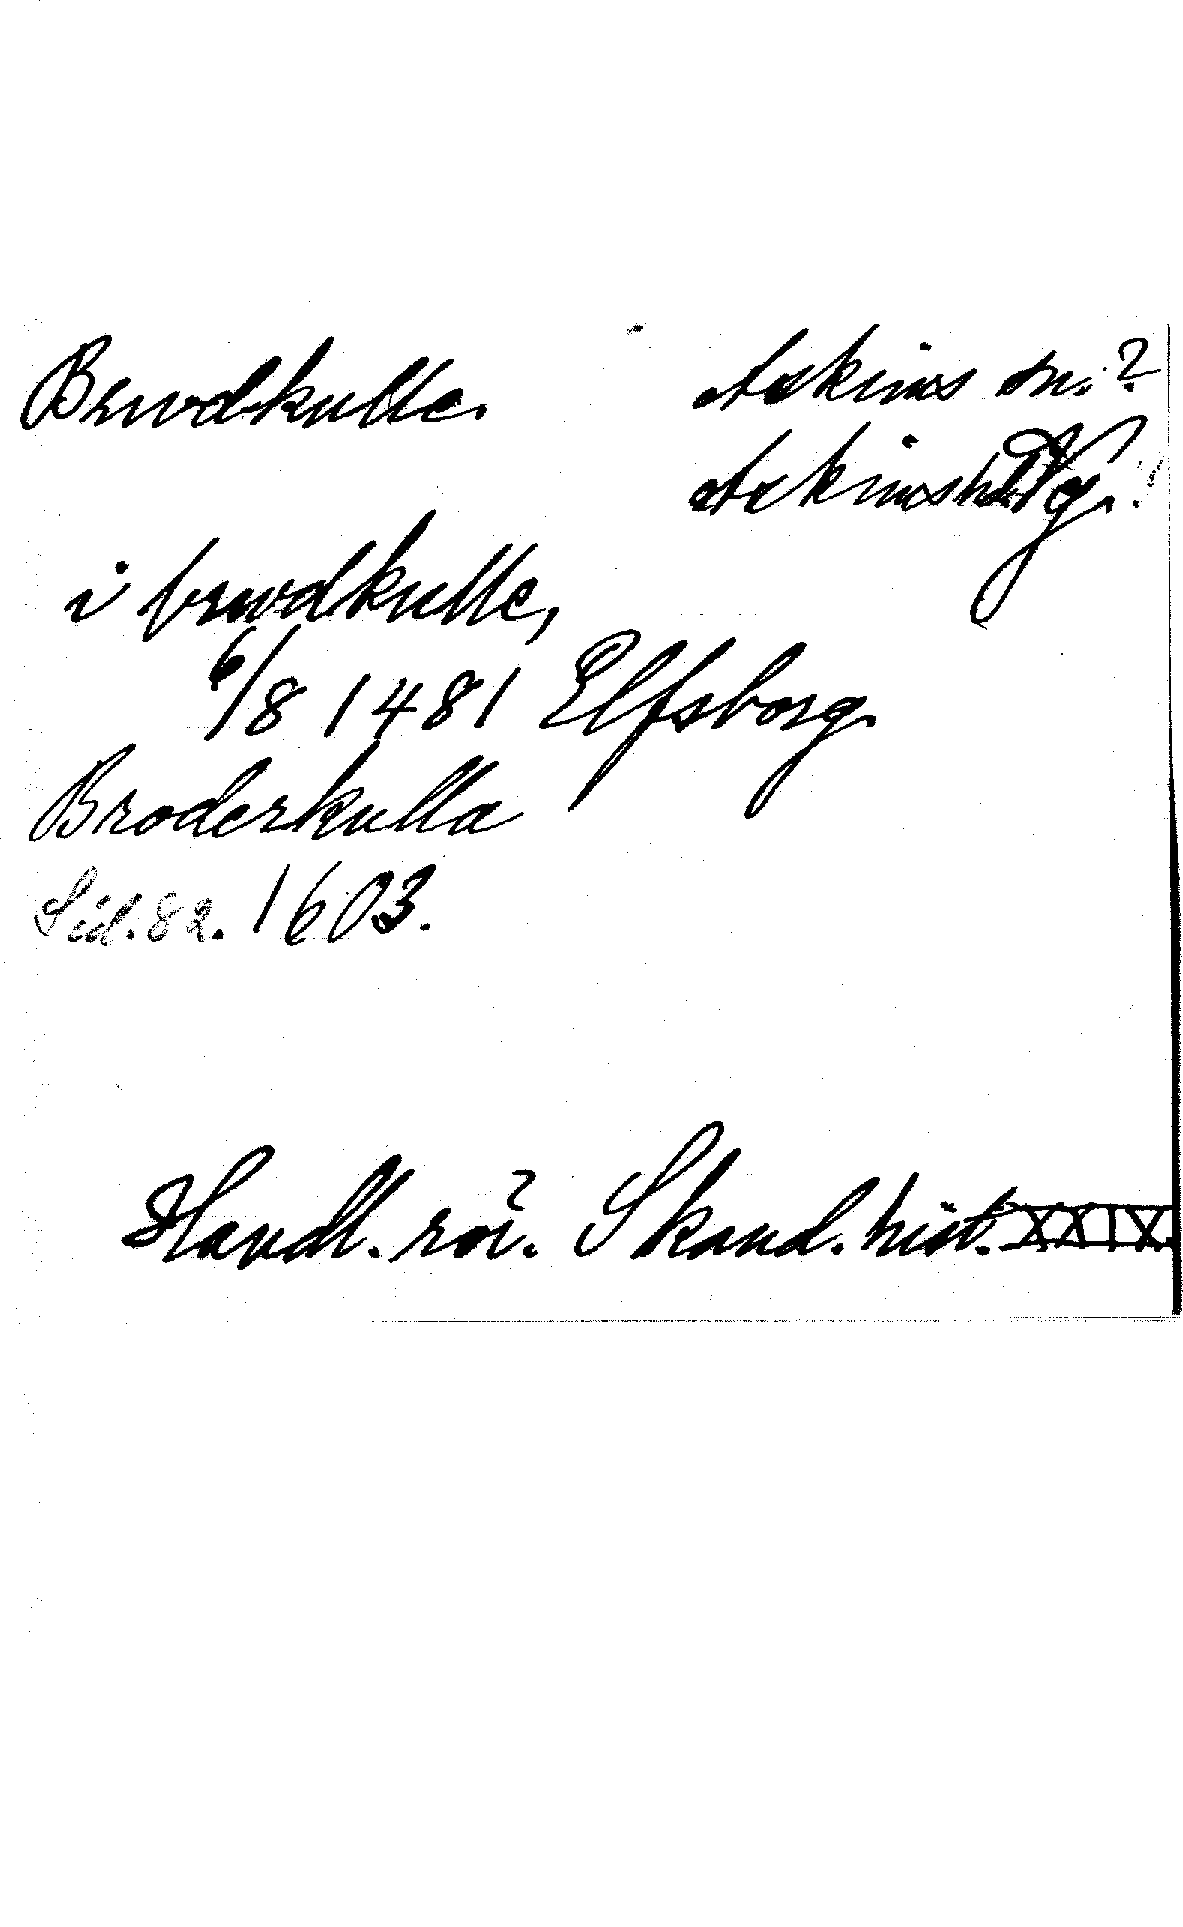 Brwdkulle. Askims sn.?
Askimshd Vg.!
i brwdkulle,
6/8 1481 Elfsborg.
Broderkulla
Sid. 82. 1603.
Handl. rör. Skand. hist. XXIX.